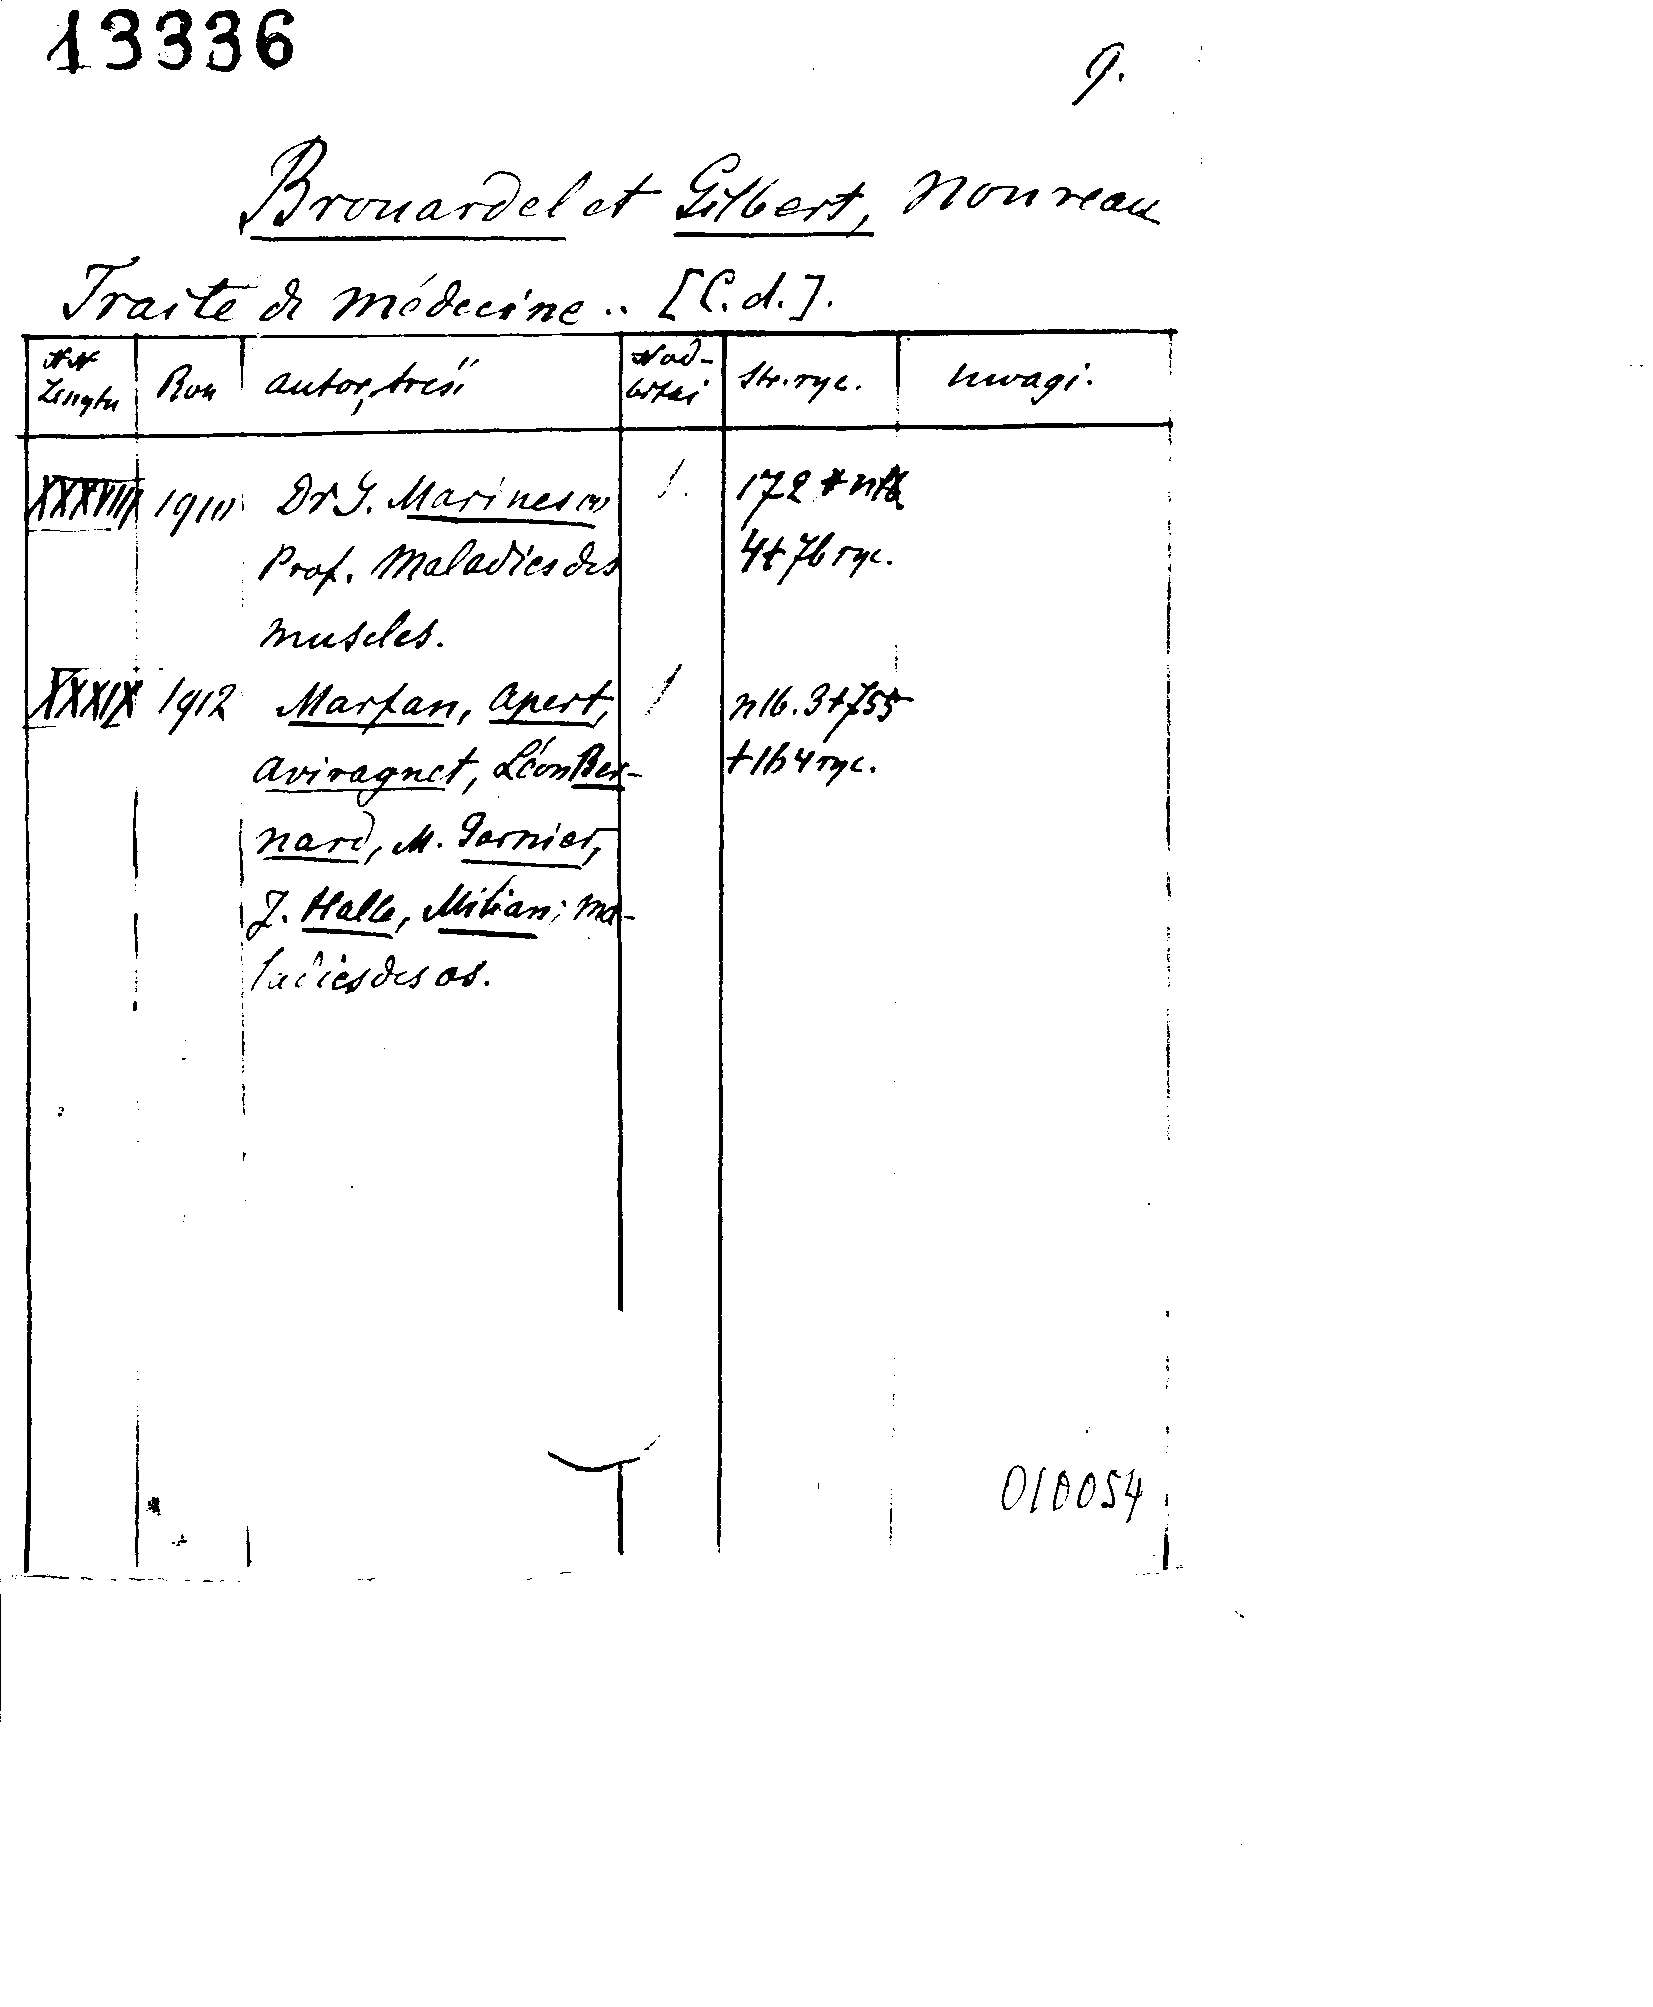 13336
9.
Brouardel et Gilbert, Nouveau
Traité de médecine .. [C.d.].
NN Zeszytu Rok autor, treść Nad- bitki str. ryc. Uwagi.
XXXVIII 1910 Dr G. Marinesco 1. 172 + nlb
Prof. Maladies des 4 + 76 ryc.
muscles.
XXXIX 1912 Marfan, Apert, 1 nlb. 3 + 755
Aviragnet, Léon Ber- + 164 ryc.
nard, M. Garnier,
J. Hallé, Milian; Ma-
ladies des os.
010054